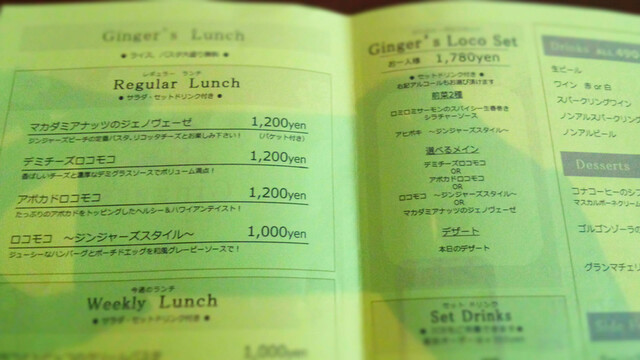 Ginger's Lunch
● ライス、パスタ大盛り無料 ●
レギュラー ランチ
Regular Lunch
● サラダ・セットドリンク付き ●
マカダミアナッツのジェノヴェーゼ 1,200yen
ジンジャーズビーチの定番パスタ、リコッタチーズとお楽しみ下さい! (バケット付き)
デミチーズロコモコ 1,200yen
香ばしいチーズと濃厚なデミグラスソースでボリューム満点!
アボカドロコモコ 1,200yen
たっぷりのアボカドをトッピングしたヘルシー&ハワイアンテイスト!
ロコモコ ~ジンジャーズスタイル~ 1,000yen
ジューシーなハンバーグとポーチドエッグを和風グレービーソースで!
今週のランチ
Weekly Lunch
● サラダ・セットドリンク付き ●
1,000yen
Ginger's Loco Set
お一人様 1,780yen
● セットドリンク付き ●
右記アルコールもお選び頂けます
前菜2種
ロミロミサーモンのスパイシー生春巻き
シラチャーソース
アヒポキ ~ジンジャーズスタイル~
選べるメイン
デミチーズロコモコ
OR
アボカドロコモコ
OR
ロコモコ ~ジンジャーズスタイル~
OR
マカダミアナッツのジェノヴェーゼ
デザート
本日のデザート
セット ドリンク
Set Drinks
Drinks ALL 490
生ビール
ワイン 赤 or 白
スパークリングワイン
ノンアルスパークリング
ノンアルビール
Desserts
コナコーヒーのシ
マスカルポーネクリーム
ゴルゴンゾーラの
グランマチェリ
Side